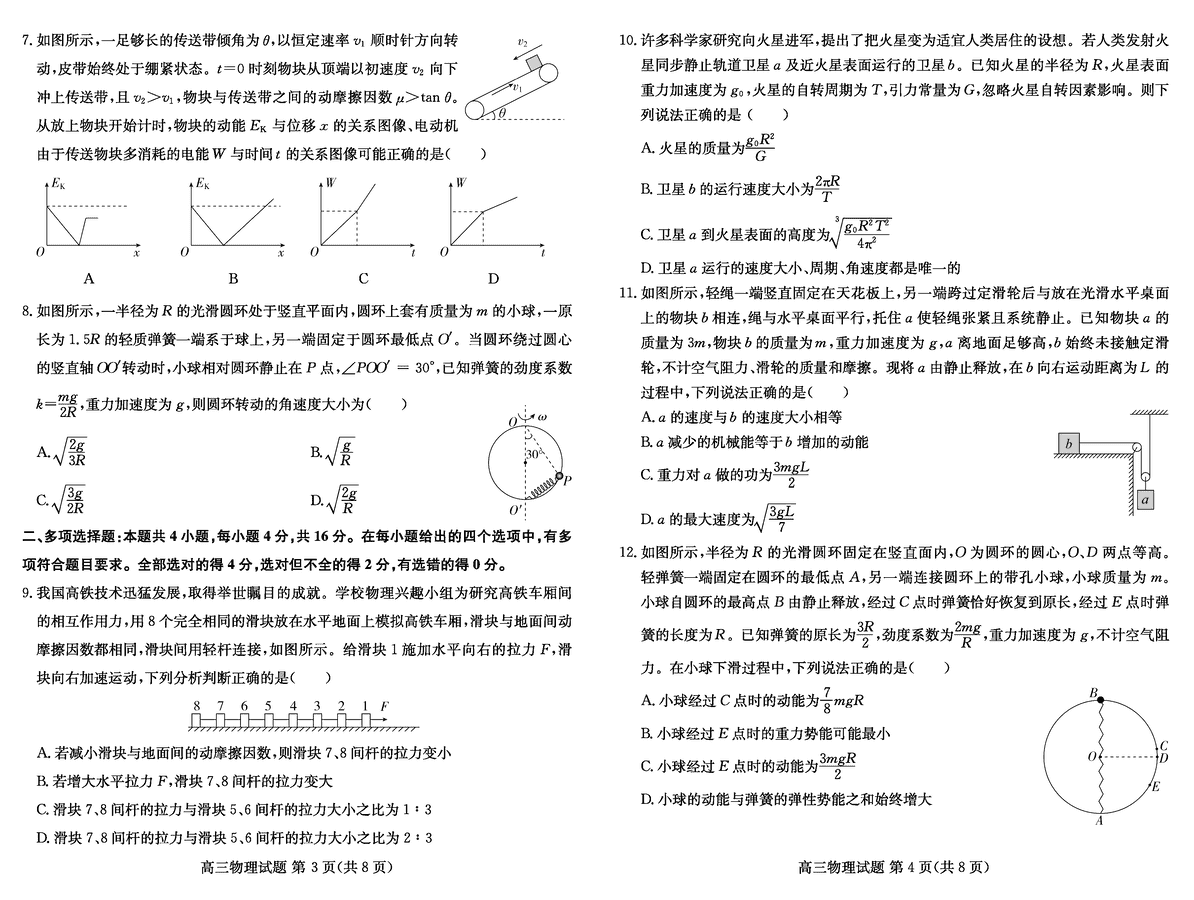 7. 如图所示,一足够长的传送带倾角为 θ,以恒定速率 v₁ 顺时针方向转
动,皮带始终处于绷紧状态。t=0 时刻物块从顶端以初速度 v₂ 向下
冲上传送带,且 v₂>v₁,物块与传送带之间的动摩擦因数 μ>tan θ。
从放上物块开始计时,物块的动能 Eₖ 与位移 x 的关系图像、电动机
由于传送物块多消耗的电能 W 与时间 t 的关系图像可能正确的是(  )
v₂
v₁
θ
Eₖ Eₖ W W
O x O x O t O t
A B C D
8. 如图所示,一半径为 R 的光滑圆环处于竖直平面内,圆环上套有质量为 m 的小球,一原
长为 1.5R 的轻质弹簧一端系于球上,另一端固定于圆环最低点 O′。当圆环绕过圆心
的竖直轴 OO′转动时,小球相对圆环静止在 P 点,∠POO′ = 30°,已知弹簧的劲度系数
k=mg/2R,重力加速度为 g,则圆环转动的角速度大小为(  )
A. √(2g/3R) B. √(g/R)
C. √(3g/2R) D. √(2g/R)
O ω
30°
P
O′
二、多项选择题:本题共 4 小题,每小题 4 分,共 16 分。在每小题给出的四个选项中,有多
项符合题目要求。全部选对的得 4 分,选对但不全的得 2 分,有选错的得 0 分。
9. 我国高铁技术迅猛发展,取得举世瞩目的成就。学校物理兴趣小组为研究高铁车厢间
的相互作用力,用 8 个完全相同的滑块放在水平地面上模拟高铁车厢,滑块与地面间动
摩擦因数都相同,滑块间用轻杆连接,如图所示。给滑块 1 施加水平向右的拉力 F,滑
块向右加速运动,下列分析判断正确的是(  )
8 7 6 5 4 3 2 1 F
A. 若减小滑块与地面间的动摩擦因数,则滑块 7、8 间杆的拉力变小
B. 若增大水平拉力 F,滑块 7、8 间杆的拉力变大
C. 滑块 7、8 间杆的拉力与滑块 5、6 间杆的拉力大小之比为 1∶3
D. 滑块 7、8 间杆的拉力与滑块 5、6 间杆的拉力大小之比为 2∶3
高三物理试题 第 3 页(共 8 页)
10. 许多科学家研究向火星进军,提出了把火星变为适宜人类居住的设想。若人类发射火
星同步静止轨道卫星 a 及近火星表面运行的卫星 b。已知火星的半径为 R,火星表面
重力加速度为 g₀,火星的自转周期为 T,引力常量为 G,忽略火星自转因素影响。则下
列说法正确的是(  )
A. 火星的质量为g₀R²/G
B. 卫星 b 的运行速度大小为2πR/T
C. 卫星 a 到火星表面的高度为∛(g₀R²T²/4π²)
D. 卫星 a 运行的速度大小、周期、角速度都是唯一的
11. 如图所示,轻绳一端竖直固定在天花板上,另一端跨过定滑轮后与放在光滑水平桌面
上的物块 b 相连,绳与水平桌面平行,托住 a 使轻绳张紧且系统静止。已知物块 a 的
质量为 3m,物块 b 的质量为 m,重力加速度为 g,a 离地面足够高,b 始终未接触定滑
轮,不计空气阻力、滑轮的质量和摩擦。现将 a 由静止释放,在 b 向右运动距离为 L 的
过程中,下列说法正确的是(  )
A. a 的速度与 b 的速度大小相等
B. a 减少的机械能等于 b 增加的动能
C. 重力对 a 做的功为3mgL/2
D. a 的最大速度为√(3gL/7)
b
a
12. 如图所示,半径为 R 的光滑圆环固定在竖直面内,O 为圆环的圆心,O、D 两点等高。
轻弹簧一端固定在圆环的最低点 A,另一端连接圆环上的带孔小球,小球质量为 m。
小球自圆环的最高点 B 由静止释放,经过 C 点时弹簧恰好恢复到原长,经过 E 点时弹
簧的长度为 R。已知弹簧的原长为3R/2,劲度系数为2mg/R,重力加速度为 g,不计空气阻
力。在小球下滑过程中,下列说法正确的是(  )
A. 小球经过 C 点时的动能为7/8mgR
B. 小球经过 E 点时的重力势能可能最小
C. 小球经过 E 点时的动能为3mgR/2
D. 小球的动能与弹簧的弹性势能之和始终增大
B
C
O D
E
A
高三物理试题 第 4 页(共 8 页)